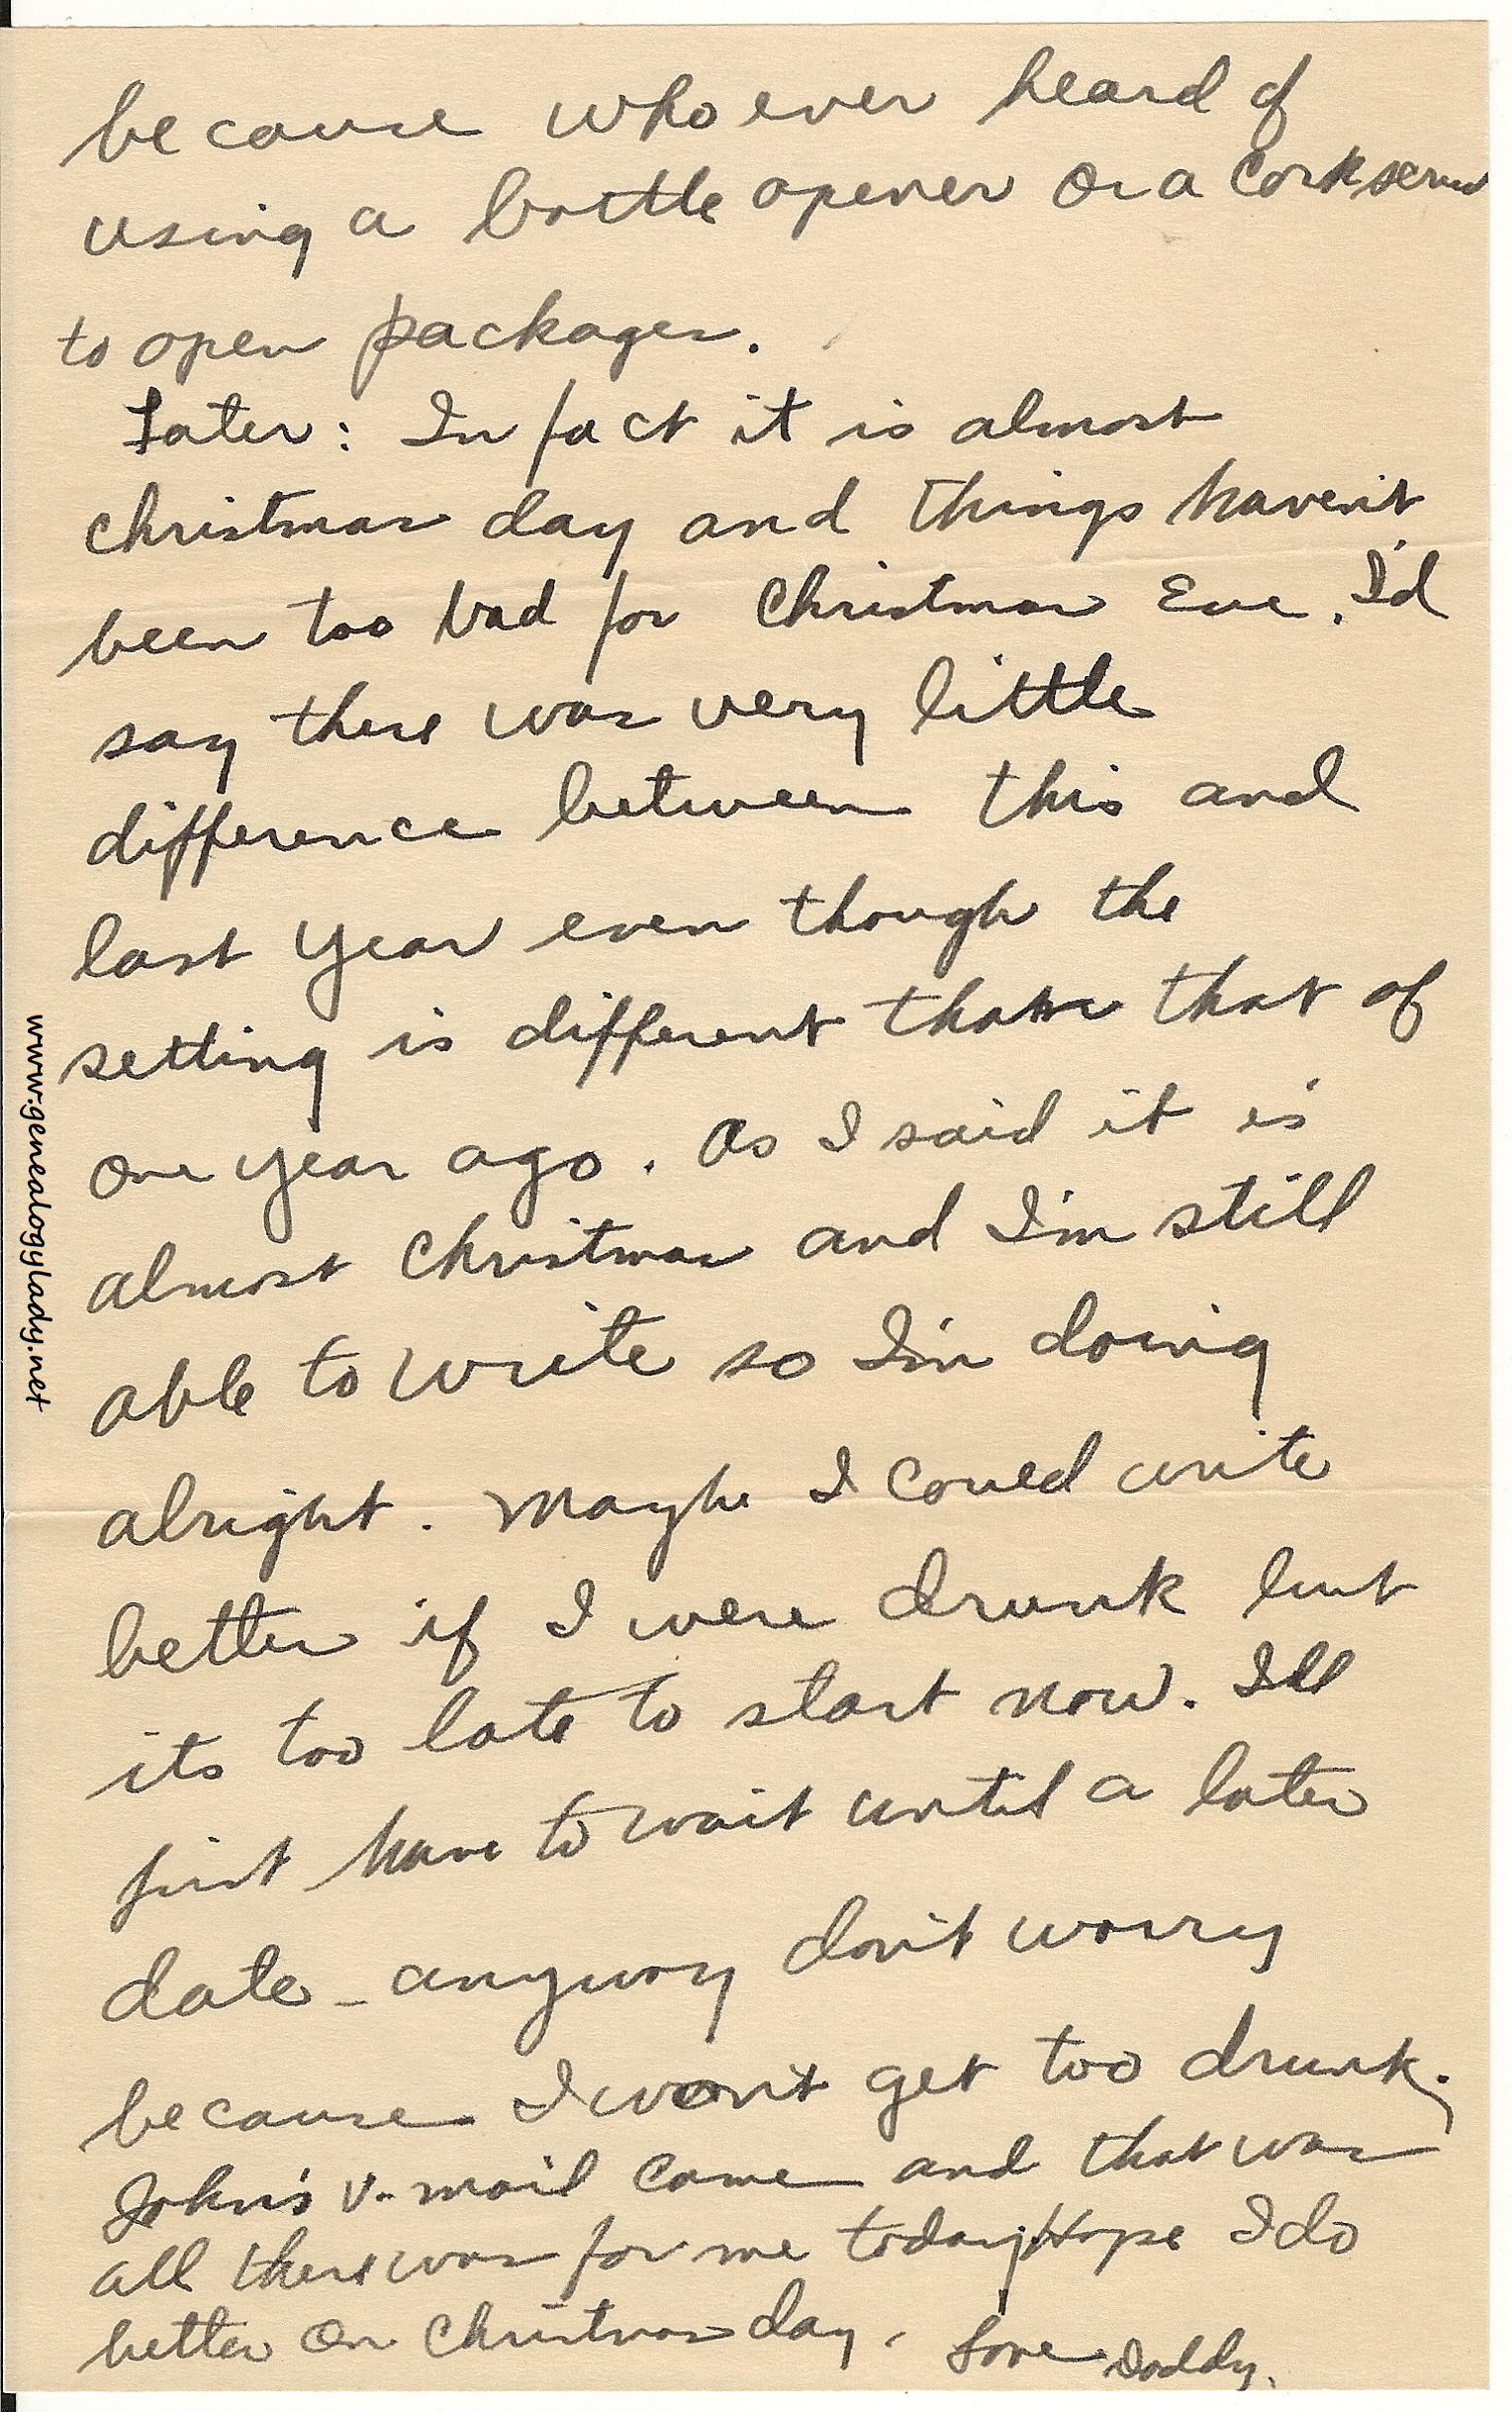 because who ever heard of
using a bottle opener or a corkscrew
to open packages.
Later: In fact it is almost
christmas day and things haven't
been too bad for Christmas Eve. I'd
say there was very little
difference between this and
last year even though the
setting is different than that of
one year ago. As I said it is
almost Christmas and I'm still
able to write so I'm doing
alright. Maybe I could write
better if I were drunk but
its too late to start now. I'll
just have to wait until a later
date - anyway don't worry
because I won't get too drunk.
John's v-mail came and that was
all there was for me today. Hope I do
better on Christmas day. Love Daddy.
www.genealogylady.net